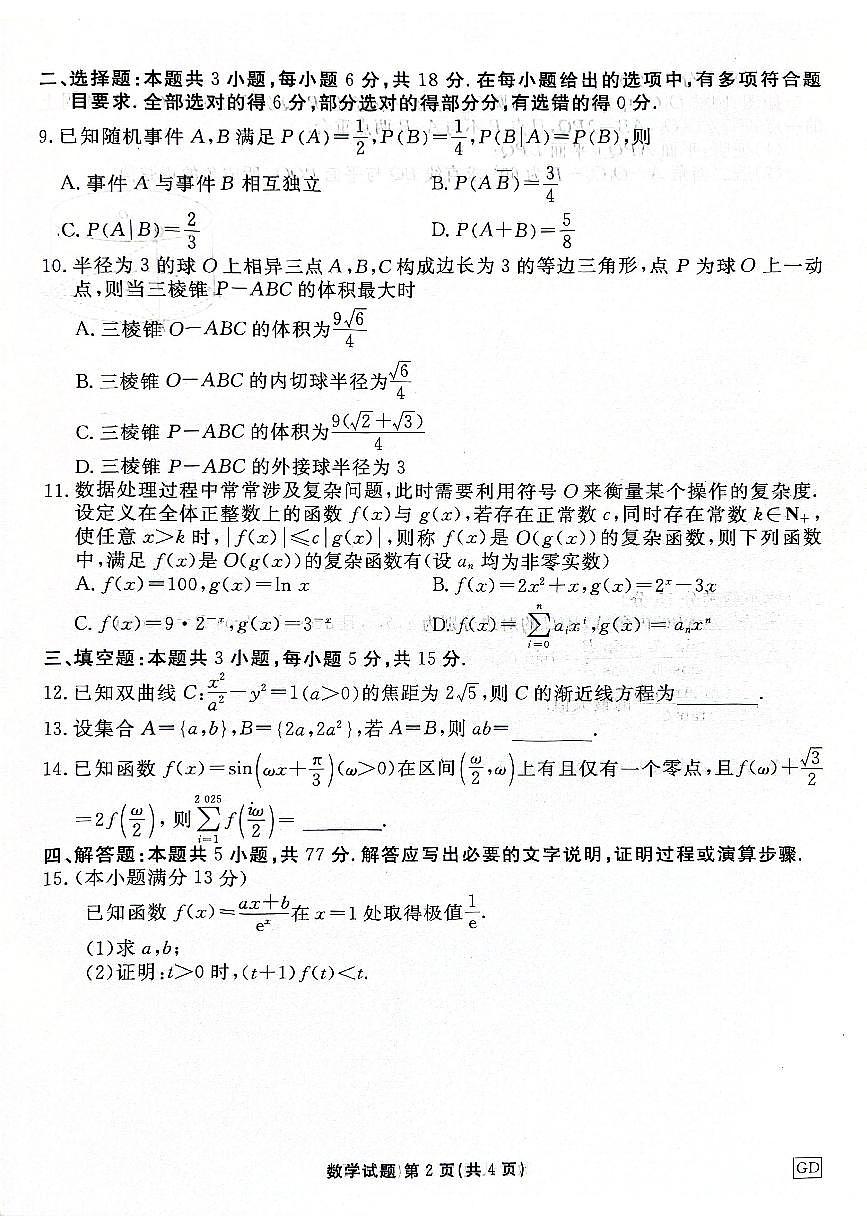 二、选择题:本题共 3 小题,每小题 6 分,共 18 分. 在每小题给出的选项中,有多项符合题
目要求. 全部选对的得 6 分,部分选对的得部分分,有选错的得 0 分.
9. 已知随机事件 A,B 满足 P(A)=1/2,P(B)=1/4,P(B|A)=P(B),则
A. 事件 A 与事件 B 相互独立 B. P(AB)=3/4
C. P(A|B)=2/3 D. P(A+B)=5/8
10. 半径为 3 的球 O 上相异三点 A,B,C 构成边长为 3 的等边三角形,点 P 为球 O 上一动
点,则当三棱锥 P-ABC 的体积最大时
A. 三棱锥 O-ABC 的体积为 9√6/4
B. 三棱锥 O-ABC 的内切球半径为 √6/4
C. 三棱锥 P-ABC 的体积为 9(√2+√3)/4
D. 三棱锥 P-ABC 的外接球半径为 3
11. 数据处理过程中常常涉及复杂问题,此时需要利用符号 O 来衡量某个操作的复杂度.
设定义在全体正整数上的函数 f(x)与 g(x),若存在正常数 c,同时存在常数 k∈N₊,
使任意 x>k 时,|f(x)|≤c|g(x)|,则称 f(x)是 O(g(x))的复杂函数,则下列函数
中,满足 f(x)是 O(g(x))的复杂函数有(设 aₙ 均为非零实数)
A. f(x)=100,g(x)=ln x B. f(x)=2x²+x,g(x)=2ˣ-3x
C. f(x)=9·2⁻ˣ,g(x)=3⁻ˣ D. f(x)=∑_{i=0}^{n} aᵢxⁱ,g(x)=aₙxⁿ
三、填空题:本题共 3 小题,每小题 5 分,共 15 分.
12. 已知双曲线 C:x²/a²-y²=1(a>0)的焦距为 2√5,则 C 的渐近线方程为________.
13. 设集合 A={a,b},B={2a,2a²},若 A=B,则 ab=________.
14. 已知函数 f(x)=sin(ωx+π/3)(ω>0)在区间(ω/2,ω)上有且仅有一个零点,且 f(ω)+√3/2
=2f(ω/2),则 ∑_{i=1}^{2 025} f(iω/2)=________.
四、解答题:本题共 5 小题,共 77 分. 解答应写出必要的文字说明,证明过程或演算步骤.
15. (本小题满分 13 分)
已知函数 f(x)=(ax+b)/eˣ 在 x=1 处取得极值 1/e.
(1)求 a,b;
(2)证明:t>0 时,(t+1)f(t)<t.
数学试题 第 2 页(共 4 页)
GD